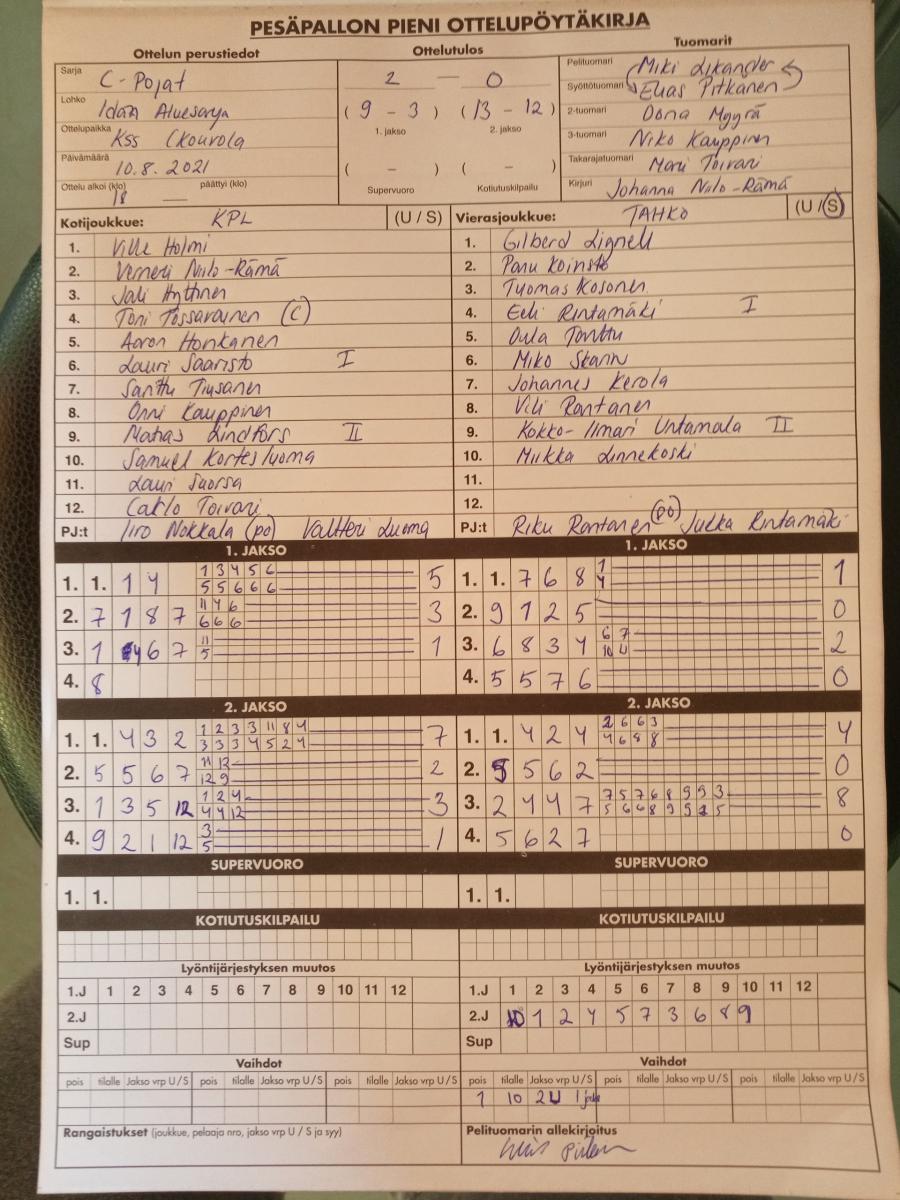 PESÄPALLON PIENI OTTELUPÖYTÄKIRJA
Ottelun perustiedot
Ottelutulos
Tuomarit
Sarja C-Pojat
Lohko Idän Aluesarja
Ottelupaikka KSS (Kouvola
Päivämäärä 10.8.2021
Ottelu alkoi (klo) 18 — päättyi (klo)
2 — 0
(9 - 3) (13 - 12)
1. jakso 2. jakso
( - ) ( - )
Supervuoro Kotiutuskilpailu
Pelituomari Miki Likander
Syöttötuomari Elias Pitkänen
2-tuomari Oona Myyrä
3-tuomari Niko Kauppinen
Takarajatuomari Mari Toivari
Kirjuri Johanna Niilo-Rämä
Kotijoukkue: KPL (U / S)
1. Ville Holmi
2. Verneri Niilo-Rämä
3. Jali Hyttinen
4. Toni Tossavainen (C)
5. Aaron Honkanen
6. Lauri Saaristo I
7. Santtu Tiusanen
8. Onni Kauppinen
9. Matias Lindfors II
10. Samuel Kortesluoma
11. Lauri Suorsa
12. Carlo Toivari
PJ:t Iiro Nokkala (po) Valtteri Luoma
Vierasjoukkue: TAHKO (U / S)
1. Gilberd Lignell
2. Panu Koinsto
3. Tuomas Kosonen
4. Eeli Rintamäki I
5. Oula Tonttu
6. Miko Skann
7. Johannes Kerola
8. Vili Rantanen
9. Kokko-Ilmari Untamala II
10. Miikka Linnekoski
11.
12.
PJ:t Riku Rantanen (po) Jukka Rintamäki
1. JAKSO
1. 1. 1 4 1 3 4 5 6 5
5 5 6 6 6
2. 7 1 8 7 11 4 6 3
6 6 6
3. 1 4 6 7 11 1
5
4. 8
1. JAKSO
1. 1. 7 6 8 1 1
4
2. 9 1 2 5 0
3. 6 8 3 4 6 7 2
10 4
4. 5 5 7 6 0
2. JAKSO
1. 1. 4 3 2 1 2 3 3 11 8 4 7
3 3 3 4 5 2 4
2. 5 5 6 7 11 12 2
12 9
3. 1 3 5 12 1 2 4 3
4 4 12
4. 9 2 1 12 3 1
5
2. JAKSO
1. 1. 4 2 4 2 6 6 3 4
4 6 8 8
2. 5 5 6 2 0
3. 2 4 4 7 7 5 7 6 8 9 9 3 8
5 6 6 8 9 9 2 5
4. 5 6 2 7 0
SUPERVUORO
1. 1.
SUPERVUORO
1. 1.
KOTIUTUSKILPAILU
KOTIUTUSKILPAILU
Lyöntijärjestyksen muutos
1.J 1 2 3 4 5 6 7 8 9 10 11 12
2.J
Sup
Lyöntijärjestyksen muutos
1.J 1 2 3 4 5 6 7 8 9 10 11 12
2.J 10 1 2 4 5 7 3 6 8 9
Sup
Vaihdot
pois tilalle Jakso vrp U / S pois tilalle Jakso vrp U / S pois tilalle Jakso vrp U / S
Vaihdot
pois tilalle Jakso vrp U / S pois tilalle Jakso vrp U / S pois tilalle Jakso vrp U / S
1 10 2U
Rangaistukset (joukkue, pelaaja nro, jakso vrp U / S ja syy)
Pelituomarin allekirjoitus